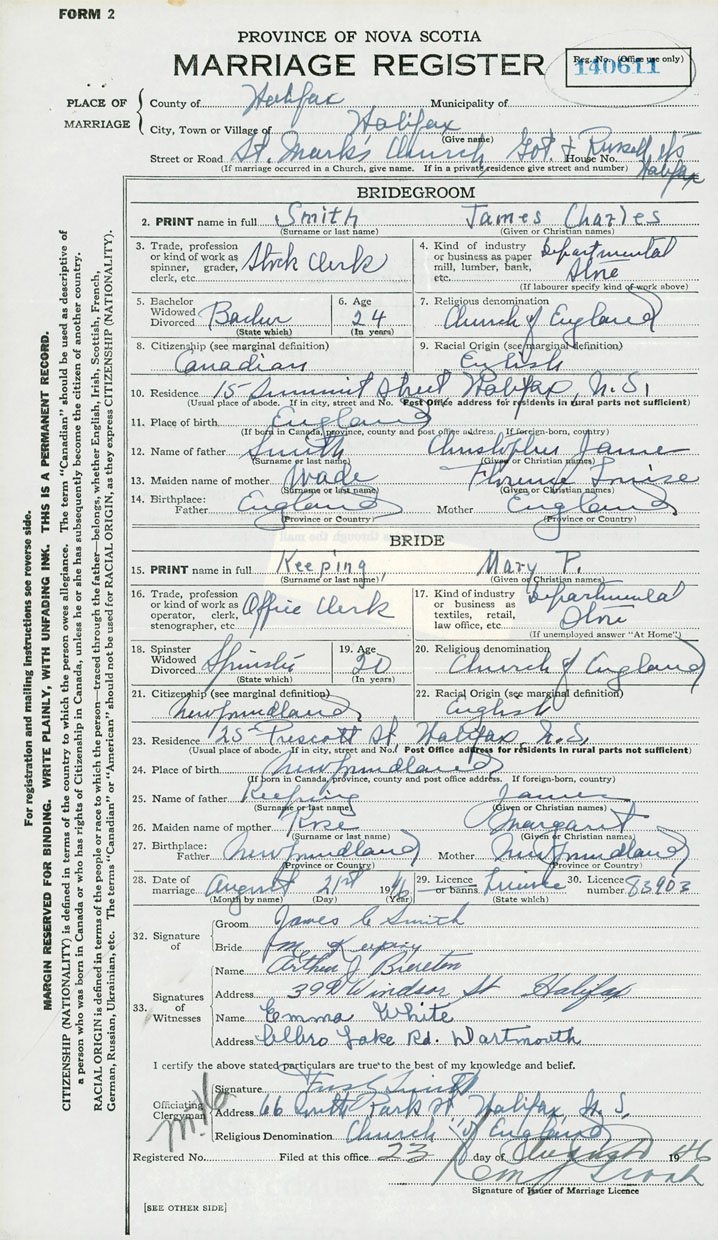 FORM 2
PROVINCE OF NOVA SCOTIA
MARRIAGE REGISTER
Reg. No. (Office use only)
140611
PLACE OF MARRIAGE
County of Halifax Municipality of
City, Town or Village of Halifax
(Give name)
Street or Road St. Mark's Church Got. & Russell Sts House No. Halifax
(If marriage occurred in a Church, give name. If in a private residence give street and number)
BRIDEGROOM
2. PRINT name in full Smith James Charles
(Surname or last name) (Given or Christian names)
3. Trade, profession or kind of work as spinner, grader, clerk, etc. Stock Clerk
4. Kind of industry or business as paper mill, lumber, bank, etc. Departmental Store
(If labourer specify kind of work above)
5. Bachelor Widowed Divorced Bachor (State which)
6. Age 24 (In years)
7. Religious denomination Church of England
8. Citizenship (see marginal definition) Canadian
9. Racial Origin (see marginal definition) English
10. Residence 15 Summit Street Halifax, N.S.
(Usual place of abode. If in city, street and No. Post Office address for residents in rural parts not sufficient)
11. Place of birth England
(If born in Canada, province, county and post office address. If foreign-born, country)
12. Name of father Smith Christopher James
(Surname or last name) (Given or Christian names)
13. Maiden name of mother Wade Florence Louise
(Surname or last name) (Given or Christian names)
14. Birthplace: Father England Mother England
(Province or Country) (Province or Country)
BRIDE
15. PRINT name in full Keeping, Mary P.
(Surname or last name) (Given or Christian names)
16. Trade, profession or kind of work as operator, clerk, stenographer, etc Office Clerk
17. Kind of industry or business as textiles, retail, law office, etc. Departmental Store
(If unemployed answer "At Home")
18. Spinster Widowed Divorced Spinster (State which)
19. Age 20 (In years)
20. Religious denomination Church of England
21. Citizenship (see marginal definition) Newfoundland
22. Racial Origin (see marginal definition) English
23. Residence 25 Prescott St Halifax, N.S.
(Usual place of abode. If in city, street and No. Post Office address for residents in rural parts not sufficient)
24. Place of birth Newfoundland
(If born in Canada, province, county and post office address. If foreign-born, country)
25. Name of father Keeping James
(Surname or last name) (Given or Christian names)
26. Maiden name of mother Rose Margaret
(Surname or last name) (Given or Christian names)
27. Birthplace: Father Newfoundland Mother Newfoundland
(Province or Country) (Province or Country)
28. Date of marriage August 21st 1946
(Month by name) (Day) (Year)
29. Licence or banns License (State which)
30. Licence number 83903
32. Signature of
Groom James C Smith
Bride M Keeping
33. Signatures of Witnesses
Name Arthur J Brereton
Address 39 Windsor St Halifax
Name Emma White
Address Lake Rd. Dartmouth
I certify the above stated particulars are true to the best of my knowledge and belief.
Officiating Clergyman
Signature Smith
Address 66 South Park St Halifax, N.S.
Religious Denomination Church of England
Registered No. Filed at this office 23 day of August 1946
Signature of Issuer of Marriage Licence
[SEE OTHER SIDE]
For registration and mailing instructions see reverse side.
MARGIN RESERVED FOR BINDING. WRITE PLAINLY, WITH UNFADING INK. THIS IS A PERMANENT RECORD.
CITIZENSHIP (NATIONALITY) is defined in terms of the country to which the person owes allegiance. The term "Canadian" should be used as descriptive of
a person who was born in Canada or who has rights of Citizenship in Canada, unless he or she has subsequently become the citizen of another country.
RACIAL ORIGIN is defined in terms of the people or race to which the person—traced through the father—belongs, whether English, Irish, Scottish, French,
German, Russian, Ukrainian, etc. The terms "Canadian" or "American" should not be used for RACIAL ORIGIN, as they express CITIZENSHIP (NATIONALITY).